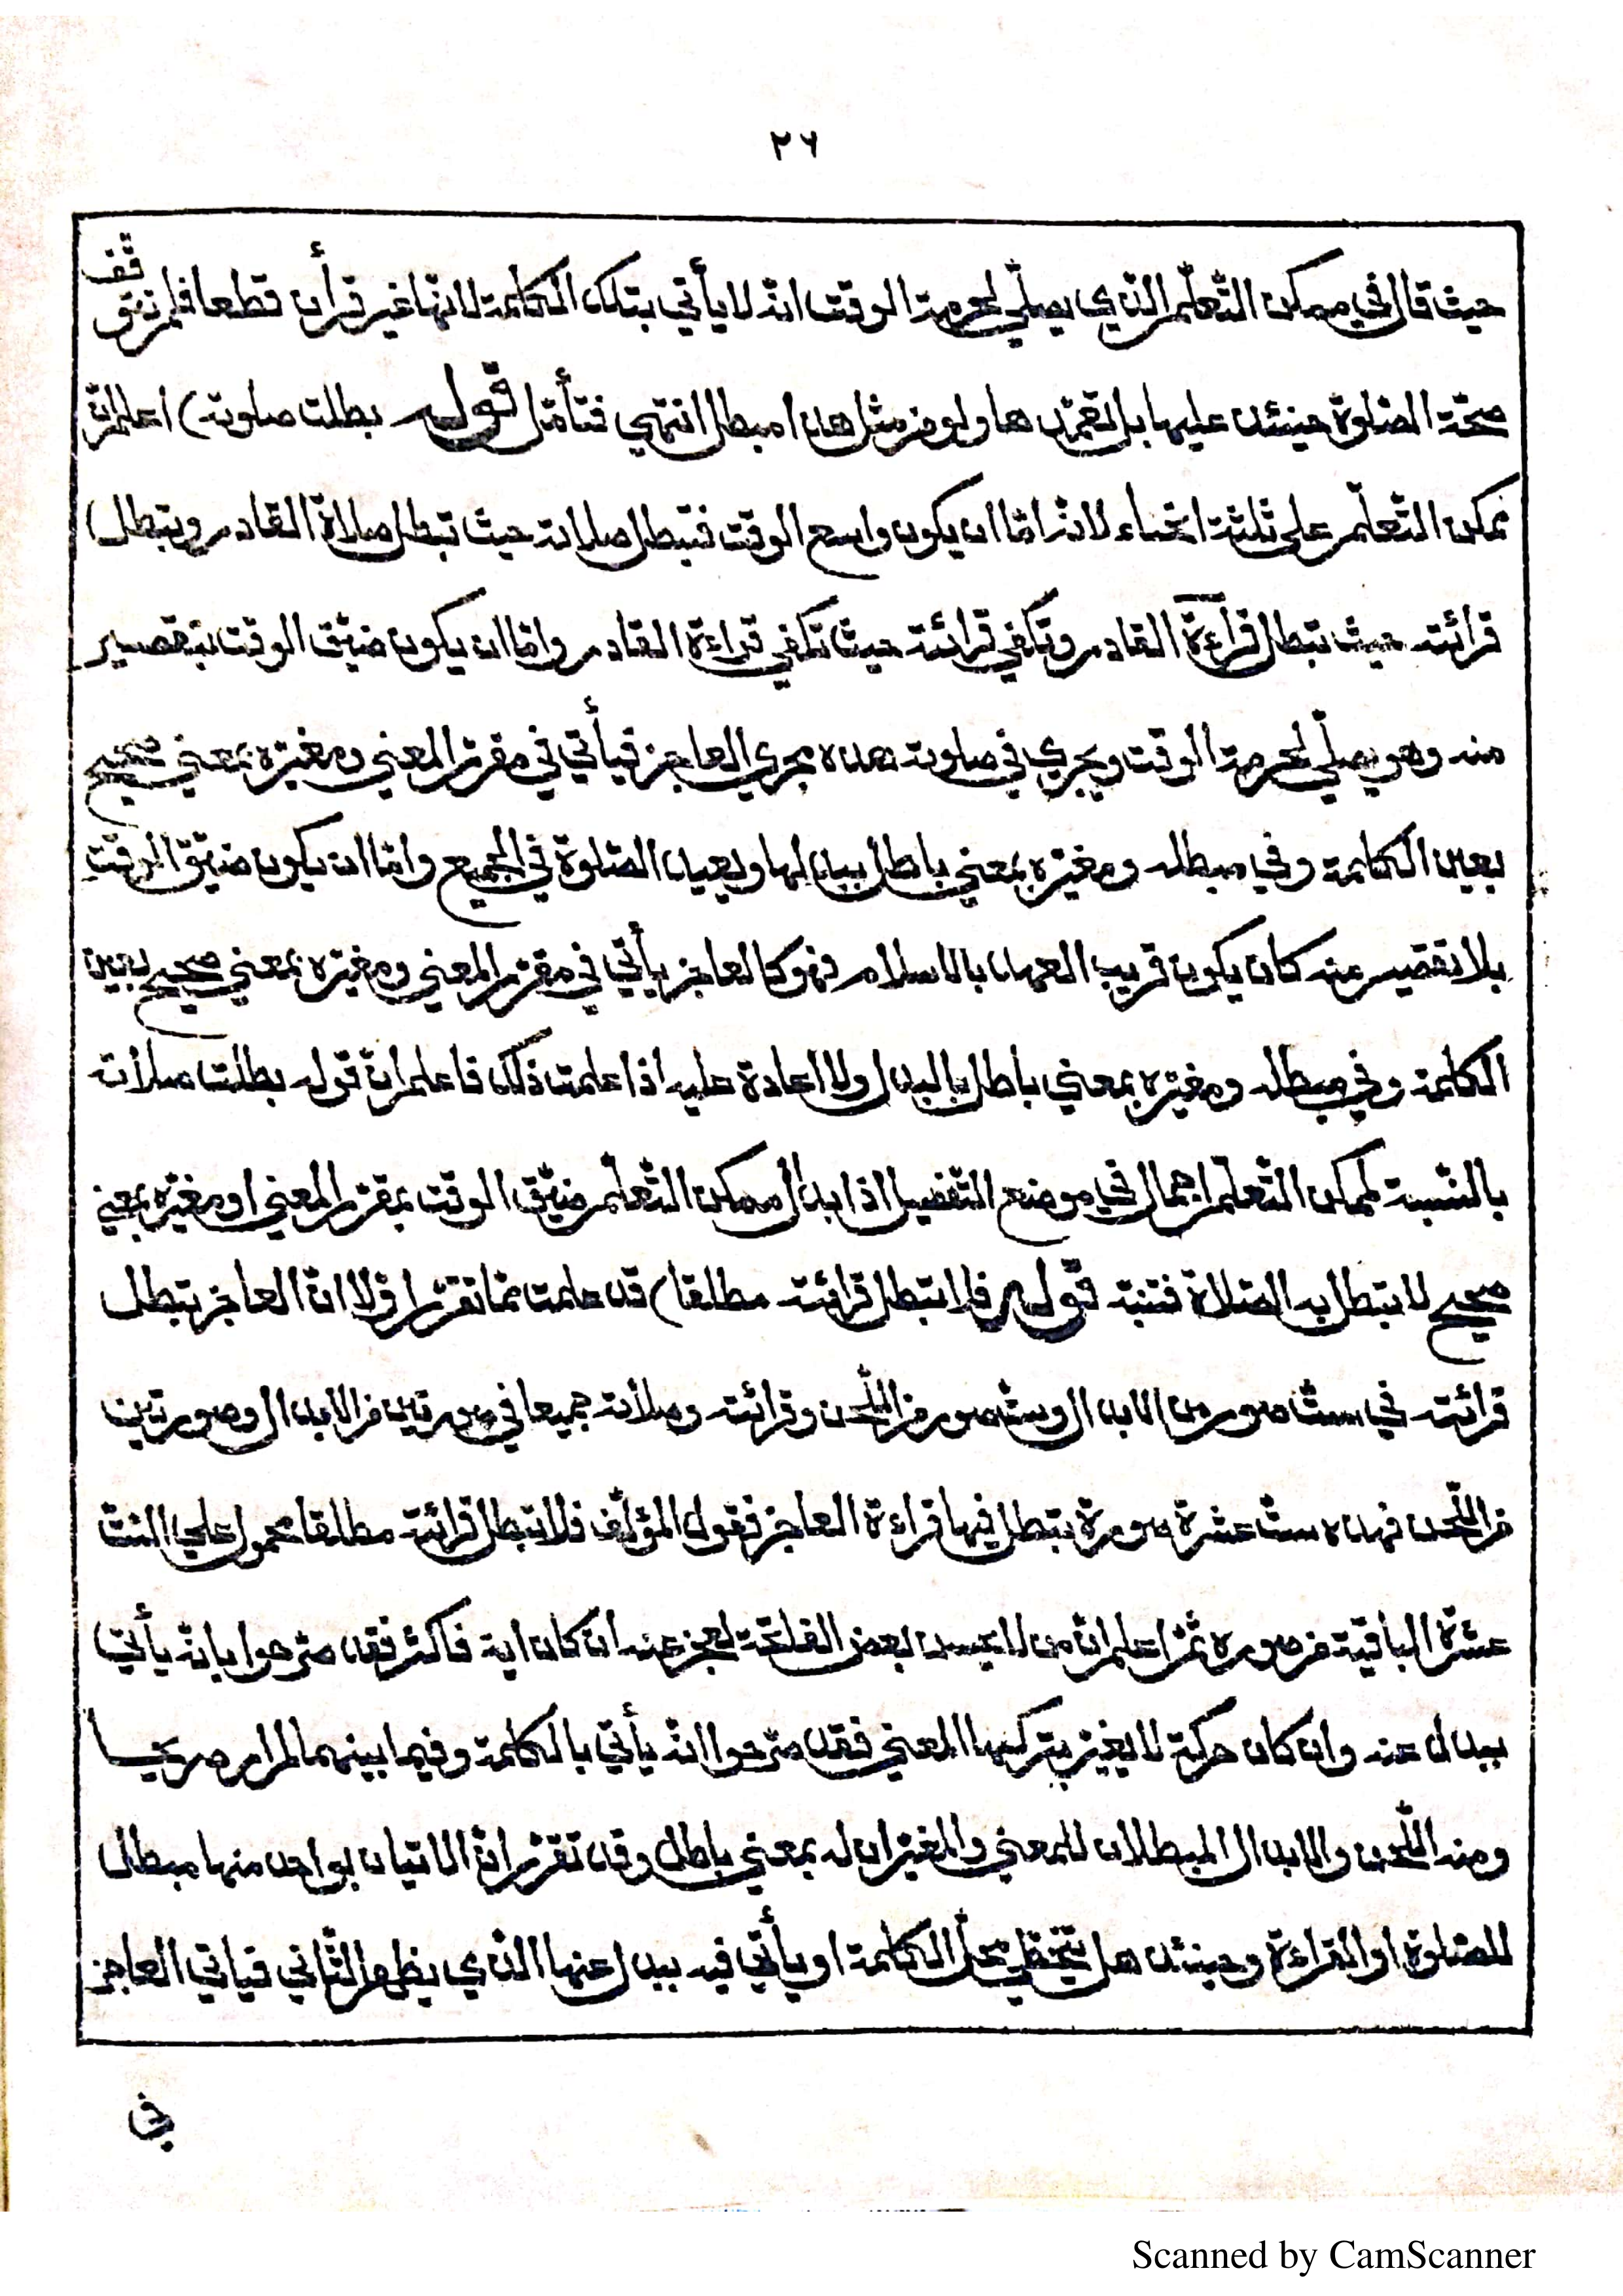 ٢٦
حيث قال في ممكن التّعلّم الّذي يصلّي لحرمة الوقت انّه لا يأتي بتلك الكلمة لانّها غير قرأن قطعا فلم تتوقّف
صحّة الصّلوة حينئذ عليها بل تعمّدها ولو من مثل هذا مبطل انتهى فتأمّل قوله بطلت صلوته) اعلم انّ
ممكن التّعلّم على ثلثة انحاء لانّه امّا ان يكون واسع الوقت فتبطل صلاته حيث تبطل صلاة القادر وتبطل
قرائته حيث تبطل قراءة القادر وتكفي قرائته حيث تكفي قراءة القادر وامّا ان يكون ضيّق الوقت بتقصير
منه وهو يصلّي لحرمة الوقت ويجري في صلوته هذه مجرى العاجز فيأتي في مقرّر المعني ومغيّره بمعني صحيح
بعين الكلمة وفي مبطله ومغيّره بمعني باطل ببدلها ويعيد الصّلوة في الجميع وامّا ان يكون ضيّق الوقت
بلا تقصير منه كان يكون قريب العهد بالاسلام فهو كالعاجز يأتي في مقرّر المعني ومغيّره بمعني صحيح بعين
الكلمة وفي مبطله ومغيّره بمعني باطل بالبدل ولا اعادة عليه اذا علمت ذلك فاعلم انّ قوله بطلت صلاته
بالنّسبة لممكن التّعلّم اجمال في موضع التّفصيل اذ ابدال ممكن التّعلّم ضيّق الوقت بمقرّر المعني او مغيّره بمعني
صحيح لا تبطل به الصّلاة فتنبّه قوله فلا تبطل قرائته مطلقا) قد علمت ممّا تقرّر اوّلا انّ العاجز تبطل
قرائته في ستّ صور من الابدال وستّ صور من اللّحن وقرائته وصلاته جميعا في صورتين من الابدال وصورتين
من اللّحن فهذه ستّ عشرة صورة تبطل فيها قراءة العاجز فقول المؤلّف فلا تبطل قرائته مطلقا محمول على السّتّ
عشرة الباقية من صوره ثمّ اعلم انّ من لا يحسن بعض الفاتحة لعجز عنه ان كان اية فاكثر فقد صرّحوا بانّه يأتي
ببدل عنه وان كان حركة لا يغيّر بتركها المعني فقد صرّحوا انّه يأتي بالكلمة وفيما بينهما لم ار صريحا
ومنه اللّحن والابدال المبطلان للمعني والمغيّران له بمعني باطل وقد تقرّر انّ الاتيان بواحد منها مبطل
للصّلوة او القراءة وحينئذ هل يتخطّي محلّ الكلمة او يأتي فيه ببدل عنها الّذي يظهر الثّاني فيأتي العاجز
في
Scanned by CamScanner